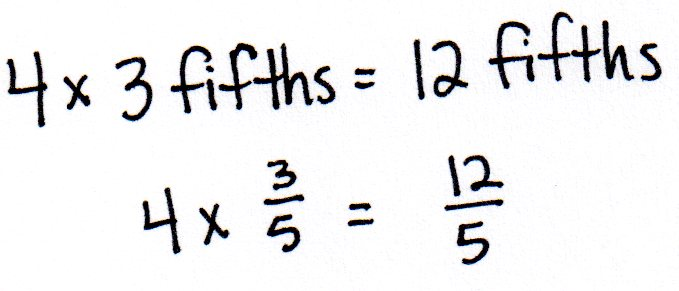 4 x 3 fifths = 12 fifths
4 x 3/5 = 12/5